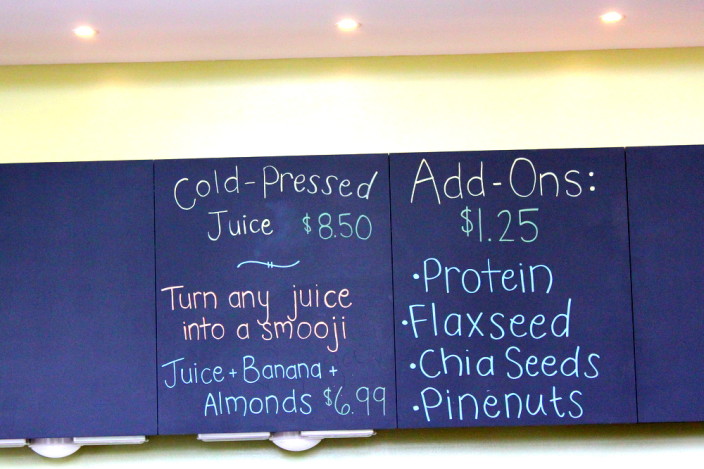 Cold-Pressed
Juice $8.50
Turn any juice
into a smooji
Juice + Banana +
Almonds $6.99
Add-Ons:
$1.25
•Protein
•Flaxseed
•Chia Seeds
•Pinenuts